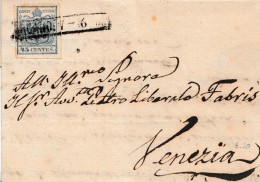 45 CENTES.
All' Ill.mo Signore
Il Sr. Avv. Pietro Liberale Fabris
Venezia